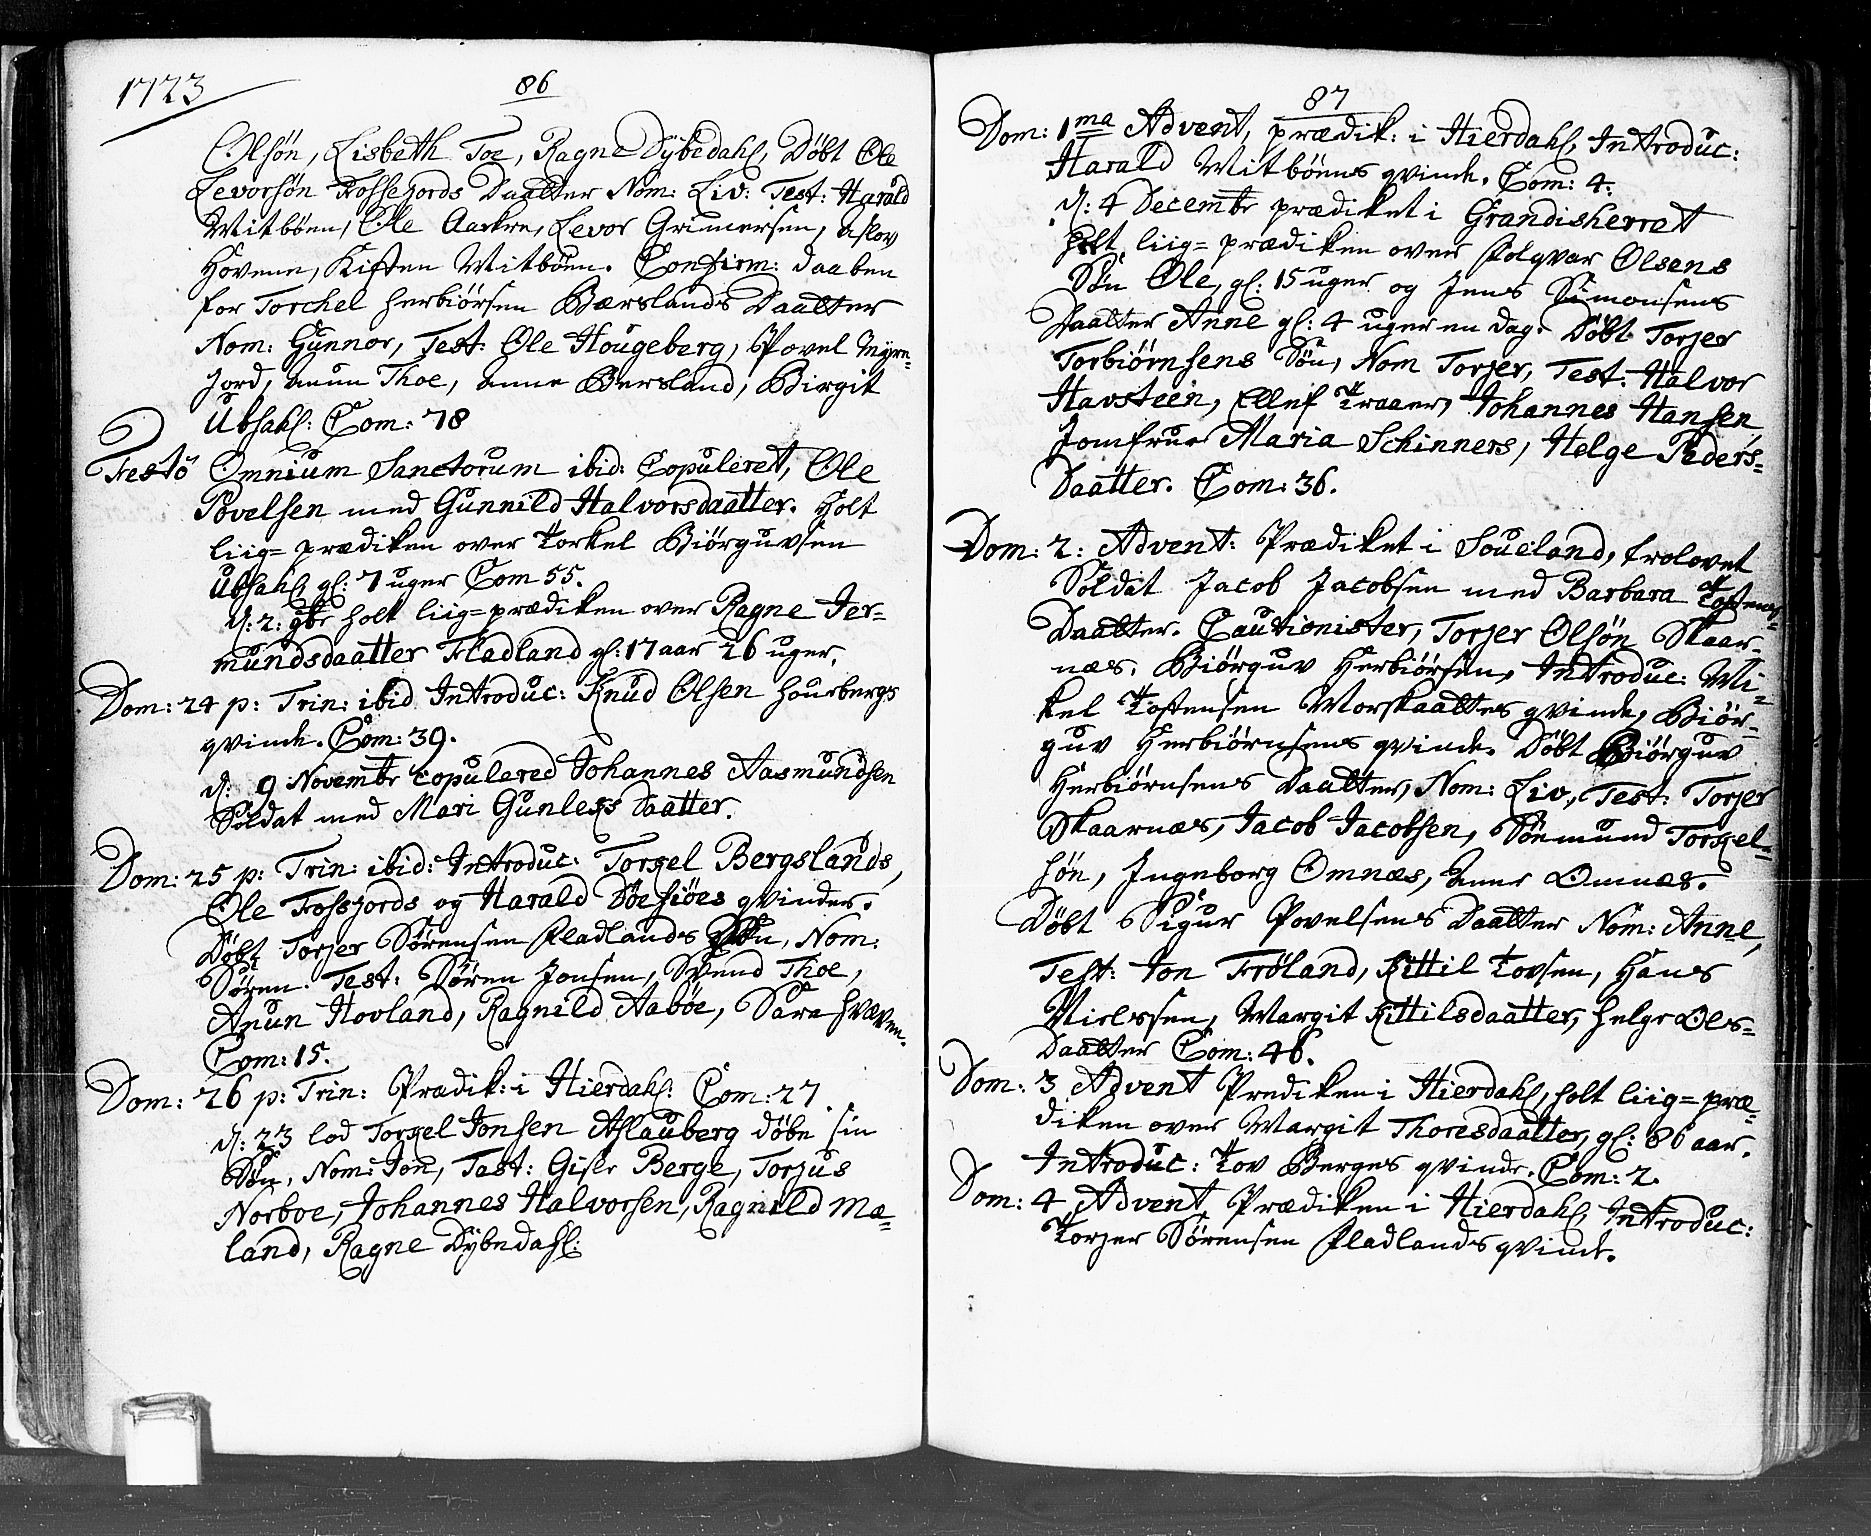 1723
86
Olsøn, Lisbeth Toe, Ragne Dybedahl, Døbt Ole
Levorsøn Fossejords Daatter Nom: Liv: Test: Harald
Mitbøen, Ole Aackre, Levor Grimersen, Aslov
Hovene, Kisten Mitbøen. Confirm: daaben
for Torchel Herbiørsen Bærslands Daatter
Nom: Gunnor, Test: Ole Hougeberg, Povel Myre-
jord, Anun Thoe, Anne Bersland, Birgit
Ubsahl: Com: 78
Festo Omnium Sanctorum ibid: Copuleret, Ole
Povelsen med Gunnild Halvorsdaatter. Holt
liig=prædiken over Torkel Biørguvsen
Ubsahl gl: 7 uger Com 55.
d: 2: 9br holt liig=prædiken over Ragne Jer-
mundsdaatter Fladland gl: 17 aar 26 uger.
Dom: 24 p: Trin: ibid Introduc: Knud Olsen Hourbergs
qvinde. Com: 39.
d: 9 Novembr copulered Johannes Aasmundsen
Soldat med Mari Gunleks Daatter.
Dom: 25 p: Trin: ibid: Introduc: Torgel Bergslands,
Ole Fossjords og Harald qvinder.
Døbt Torjer Sørensen Fladlands Søn, Nom:
Søren. Test: Søren Jonsen, Svend Thoe,
Anun Hovland, Ragnild Aabøe, Sara Hvæven.
Com: 15.
Dom: 26 p: Trin: Prædik: i Hierdahl: Com: 27.
d: 23 lod Torgel Jonsen Aslauberg døbe sin
Søn, Nom: Jon, Test: Gisle Berge, Torjus
Norboe, Johannes Halvorsen, Ragnild Mæ-
land, Ragne Dybedahl:
87
Dom: 1ma Advent, prædik: i Hierdahl, Introduc:
Harald Mitbøens qvinde. Com: 4.
d: 4 Decembr prædiket i Grandisherret
holt liig=prædiken over Folqvar Olsens
Søn Ole, gl: 15 uger og Jens Simonsens
Daatter Anne gl: 4 uger en dag. Døbt Torjer
Torbiørnsens Søn, Nom Torjer, Test: Halvor
Havsteen, Ellef Traaer, Johannes Hansen,
Jomfrue Maria Schinners, Helge Peders-
Daatter. Com: 36.
Dom: 2: Advent: Prædiket i Soueland, trolovet
Soldat Jacob Jacobsen med Barbara Tostens-
Daatter. Cautionister, Torjer Olsøn Skaar-
næs, Biørguv Herbiørsen, Introduc: Mi-
kel Tostensen Morskaattes qvinde, Biør-
guv Herbiørnsens qvinde. Døbt Biørguv
Herbiørnsens Daatter, Nom: Liv, Test: Torjer
Skaarnæs, Jacob Jacobsen, Sønmund Torgel-
søn, Ingeborg Omnæs, Anne Omnæs.
Døbt Sigur Povelsens Daatter Nom: Anne,
Test: Jon Frøland, Kittil Tovsen, Hans
Nielssen, Margit Kittilsdaatter, Helge Ols-
Daatter Com: 46.
Dom: 3 Advent Prediken i Hierdahl, holt liig=præ-
diken over Margit Thoresdaatter, gl: 86 aar.
Introduc: Tov Berges qvinde. Com: 2.
Dom: 4 Advent, Prædiken i Hierdahl, Introduc:
Torjer Sørensen Fladlands qvinde.